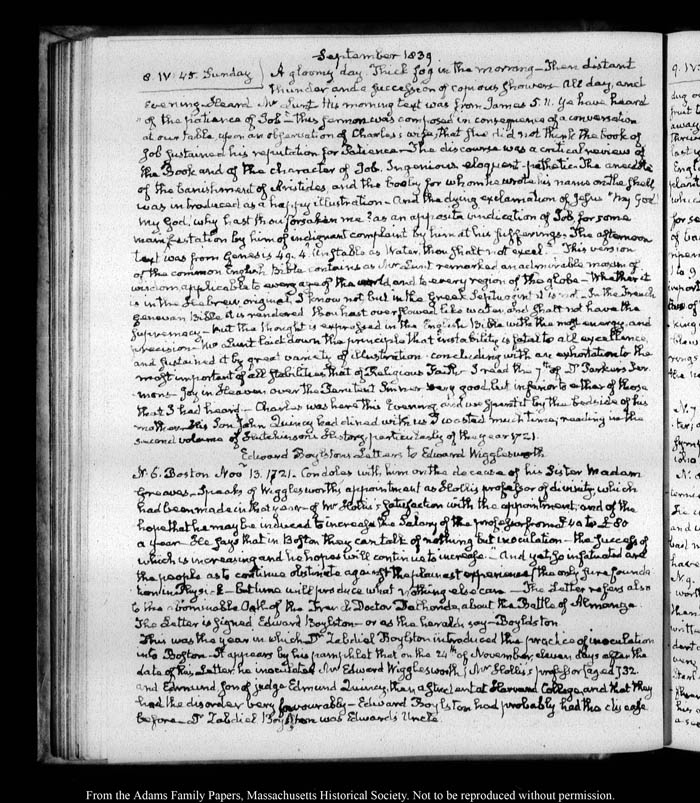 September 1839
8. IV:45. Sunday
A gloomy day. Thick fog in the morning — Then distant
thunder and a succession of copious showers all day, and
Evening. Heard Mr Lunt. His morning text was from James 5. 11. Ye have heard
of the patience of Job — this sermon was composed in consequence of a conversation
at our table, upon an observation of Charles's wife, that she did not think the book of
Job sustained his reputation for Patience — The discourse was a critical review of
the Book and of the character of Job. Ingenious, eloquent, pathetic. The anecdote
of the banishment of Aristides, and the booby for whom he wrote his name on the shell,
was introduced as a happy illustration — And the dying exclamation of Jesus "My God
my God, why hast thou forsaken me? as an apposite vindication of Job for some
manifestation by him of indignant complaint by him at his sufferings. The afternoon
text was from Genesis 49. 4. Unstable as Water, thou shalt not excel." This version
of the common English Bible contains as Mr Lunt remarked an admirable maxim of
wisdom, applicable to every age of the world and to every region of the globe — Whether it
is in the Hebrew original, I know not, but in the Greek Septuagint it is not — In the French
genevan Bible it is rendered Thou hast overflowed like water, and shalt not have the
supremacy — but the thought is expressed in the English Bible with the most energy, and
precision — Mr Lunt laid down the principle that instability is fatal to all excellence,
and sustained it by great variety of illustration. concluding with an exhortation to the
most important of all stabilities that of Religious Faith — I read the 7th of Dr Parkins Ser
mons — Joy in Heaven over the Penitent Sinner very good but inferior to either of those
that I had heard — Charles was here this Evening and we passed it by the bedside of his
mother — His Son John Quincy had dined with us. I wasted much time, reading in the
second volume of Hutchinson's History, particularly of the year 1721.
Edward Boylston's Letters to Edward Wigglesworth
N. 6. Boston Novr 13. 1721. Condoles with him on the decease of his Sister Madam
Greaves — Speaks of Wigglesworth's appointment as Hollis professor of divinity, which
had been made in that year — of Mr Hollis's satisfaction with the appointment, and of the
hope that he may be induced to increase the Salary of the professor from £40 to £80
a year — He says that in Boston they can talk of nothing but inoculation — the success of
which is increasing and he hopes will continue to increase. "And yet so infatuated are
the people as to continue obstinate against the plainest experience (the only sure founda
tion in Physick — but time will produce what nothing else can — The Letter refers also
to the abominable Oath of the French Doctor Dalhonde, about the Battle of Almanza.
The Letter is signed Edward Boylston — or as the heralds say — Boyldston
This was the year in which Dr Zabdiel Boylston introduced the practice of inoculation
into Boston. It appears by his pamphlet that on the 24th of November, eleven days after the
date of this Letter, he inoculated Mr Edward Wigglesworth (Mr Hollis's professor) aged 32.
and Edmund son of judge Edmund Quincy, then a student at Harvard College, and that they
had the disorder very favourably — Edward Boylston had probably had the disease
before — Dr Zabdiel Boylston was Edwards Uncle
From the Adams Family Papers, Massachusetts Historical Society. Not to be reproduced without permission.